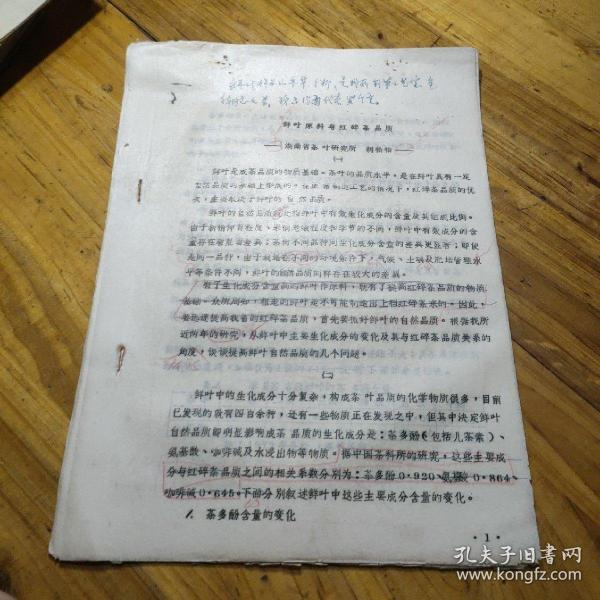 鲜叶原料与红碎茶品质
湖南省茶叶研究所
(一)
鲜叶是成茶品质的物质基础。茶叶的品质水平,是在鲜叶具有一定
品质的基础上形成的。在正常制造工艺的情况下,红碎茶品质的优
次,主要取决于鲜叶的自然品质。
鲜叶的自然品质就是指鲜叶中有效生化成分的含量及其组成比例。
由于新梢伸育程度、采摘老嫩程度和季节的不同,鲜叶中有效成分的含
量存在着显著差异;茶树不同品种间生化成分含量的差异更显著;即使
是同一品种,由于栽培在不同的环境条件下,气候、土壤及肥培管理水
平等条件不同,鲜叶的自然品质同样存在较大的差异。
有了生化成分含量高的鲜叶作原料,就有了提高红碎茶品质的物质
基础。众所周知,粗老的鲜叶是不可能制造出上档红碎茶来的,因此,
要迅速提高我省的红碎茶品质,首先要抓好鲜叶的自然品质。根据我所
近两年的研究,从鲜叶中主要生化成分的变化及其与红碎茶品质关系的
角度,谈谈提高鲜叶自然品质的几个问题。
(二)
鲜叶中的生化成分十分复杂,构成茶叶品质的化学物质很多,目前
已发现的就有四百余种,还有一些物质正在发现之中,但其中决定鲜叶
自然品质即明显影响成茶品质的生化成分是:茶多酚(包括儿茶素)、
氨基酸、咖啡碱及水浸出物等物质。据中国茶科所的研究,这些主要成
分与红碎茶品质之间的相关系数分别为:茶多酚0.920、氨基酸0.864、
咖啡碱0.645。下面分别叙述鲜叶中这些主要成分含量的变化。
1. 茶多酚含量的变化
·1·
孔夫子旧书网
www.kongfz.com